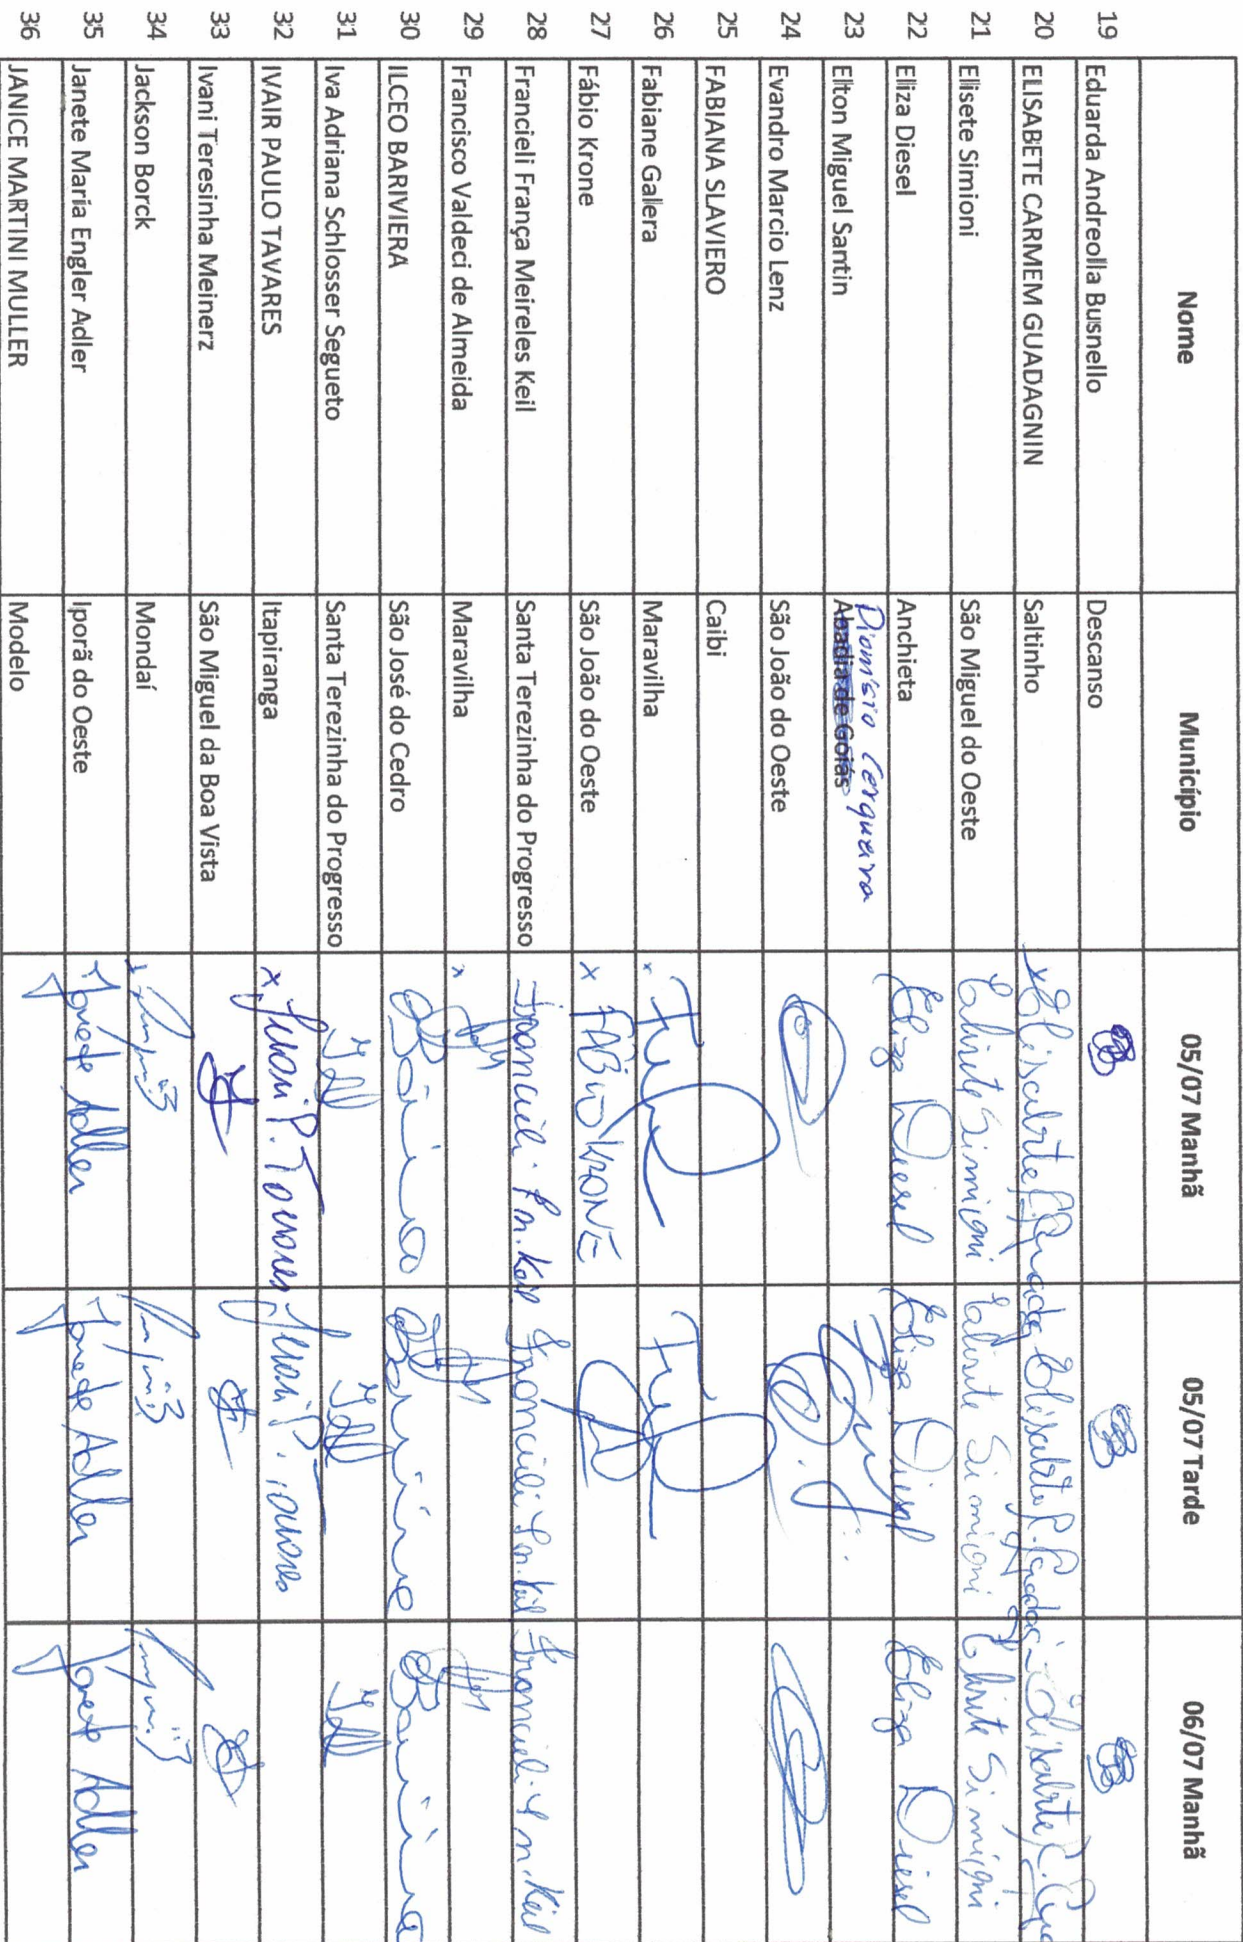 Nome Município 05/07 Manhã 05/07 Tarde 06/07 Manhã
19 Eduarda Andreolla Busnello Descanso
20 ELISABETE CARMEM GUADAGNIN Saltinho
21 Elisete Simioni São Miguel do Oeste Elisete Simioni Elisete Simioni Elisete Simioni
22 Eliza Diesel Anchieta Eliza Diesel Eliza Diesel Eliza Diesel
23 Elton Miguel Santin Dionísio Cerqueira
Abadia de Goiás
24 Evandro Marcio Lenz São João do Oeste
25 FABIANA SLAVIERO Caibi
26 Fabiane Gallera Maravilha x
27 Fábio Krone São João do Oeste x FÁBIO KRONE
28 Francieli França Meireles Keil Santa Terezinha do Progresso Francieli F. M. Keil Francieli F. M. Keil Francieli F. M. Keil
29 Francisco Valdeci de Almeida Maravilha x
30 ILCEO BARIVIERA São José do Cedro
31 Iva Adriana Schlosser Segueto Santa Terezinha do Progresso
32 IVAIR PAULO TAVARES Itapiranga x Ivair P. Tavares Ivair P. Tavares
33 Ivani Teresinha Meinerz São Miguel da Boa Vista
34 Jackson Borck Mondaí x
35 Janete Maria Engler Adler Iporã do Oeste Janete Adler Janete Adler Janete Adler
36 JANICE MARTINI MULLER Modelo